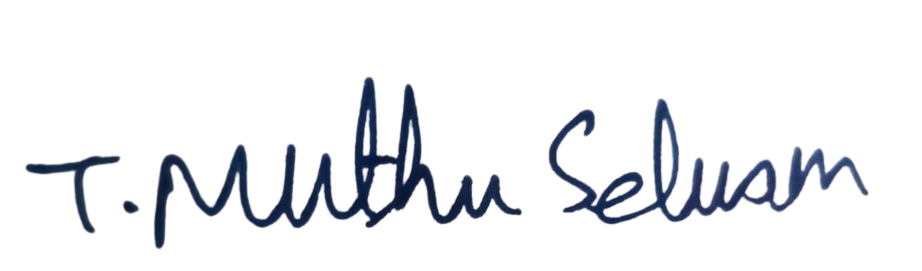 T. Muthu Selvam